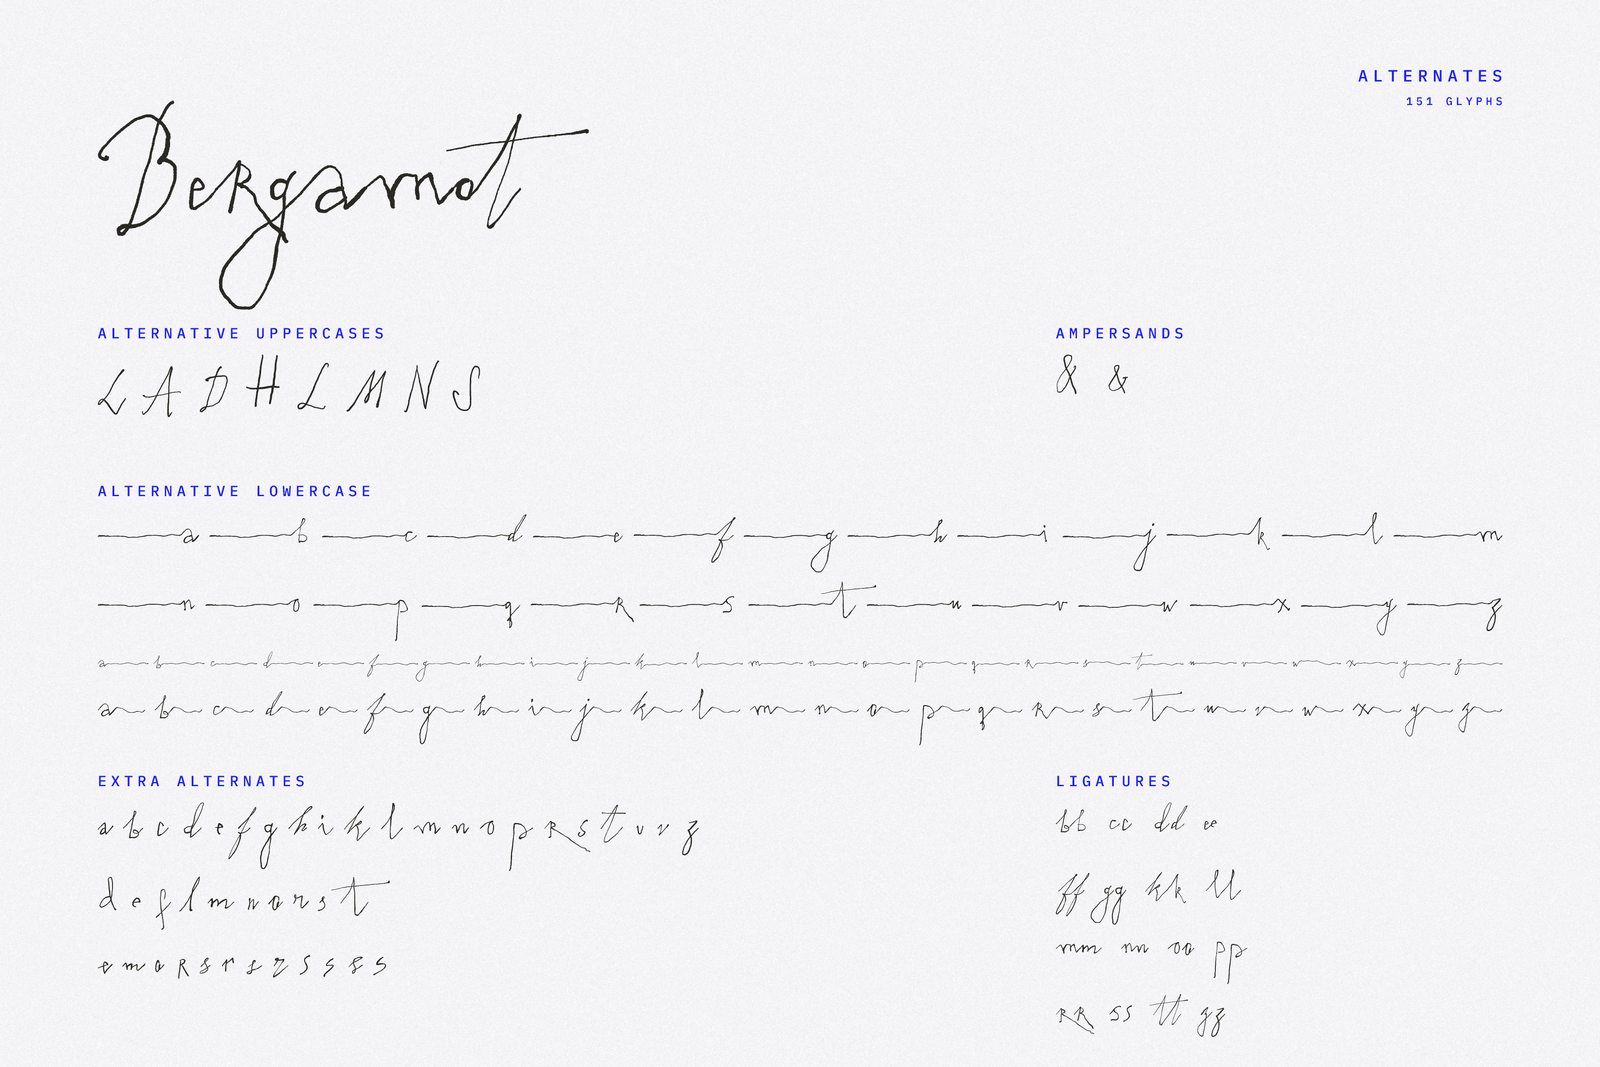 ALTERNATES
151 GLYPHS
Bergamot
ALTERNATIVE UPPERCASES
L A D H L M N S
AMPERSANDS
& &
ALTERNATIVE LOWERCASE
a b c d e f g h i j k l m
n o p q R s t u v w x y z
a b c d e f g h i j k l m n o p q R s t u v w x y z
a b c d e f g h i j k l m n o p q R s t u v w x y z
EXTRA ALTERNATES
a b c d e f g h i k l m n o p R s t u v z
d e f l m n o r s t
e m o R s r s z s s s s
LIGATURES
bb cc dd ee
ff gg kk ll
mm nn oo pp
RR ss tt zz